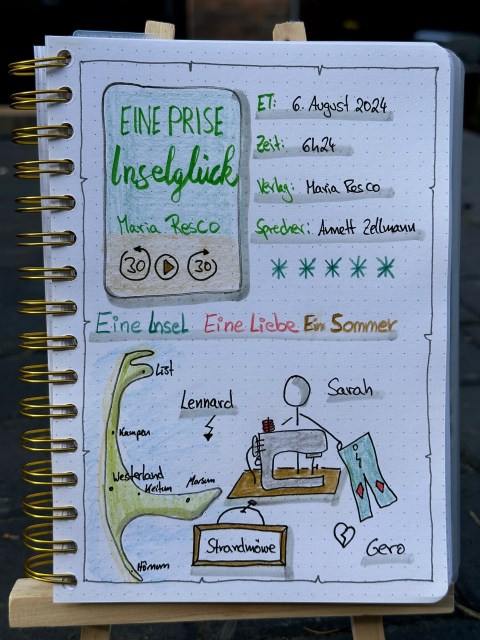 EINE PRISE
Inselglück
Maria Resco
30 30
ET: 6. August 2024
Zeit: 6h24
Verlag: Maria Resco
Sprecher: Annett Zellmann
Eine Insel Eine Liebe Ein Sommer
List
Kampen
Westerland
Keitum
Morsum
Hörnum
Lennard
Sarah
Strandmöwe
Gero